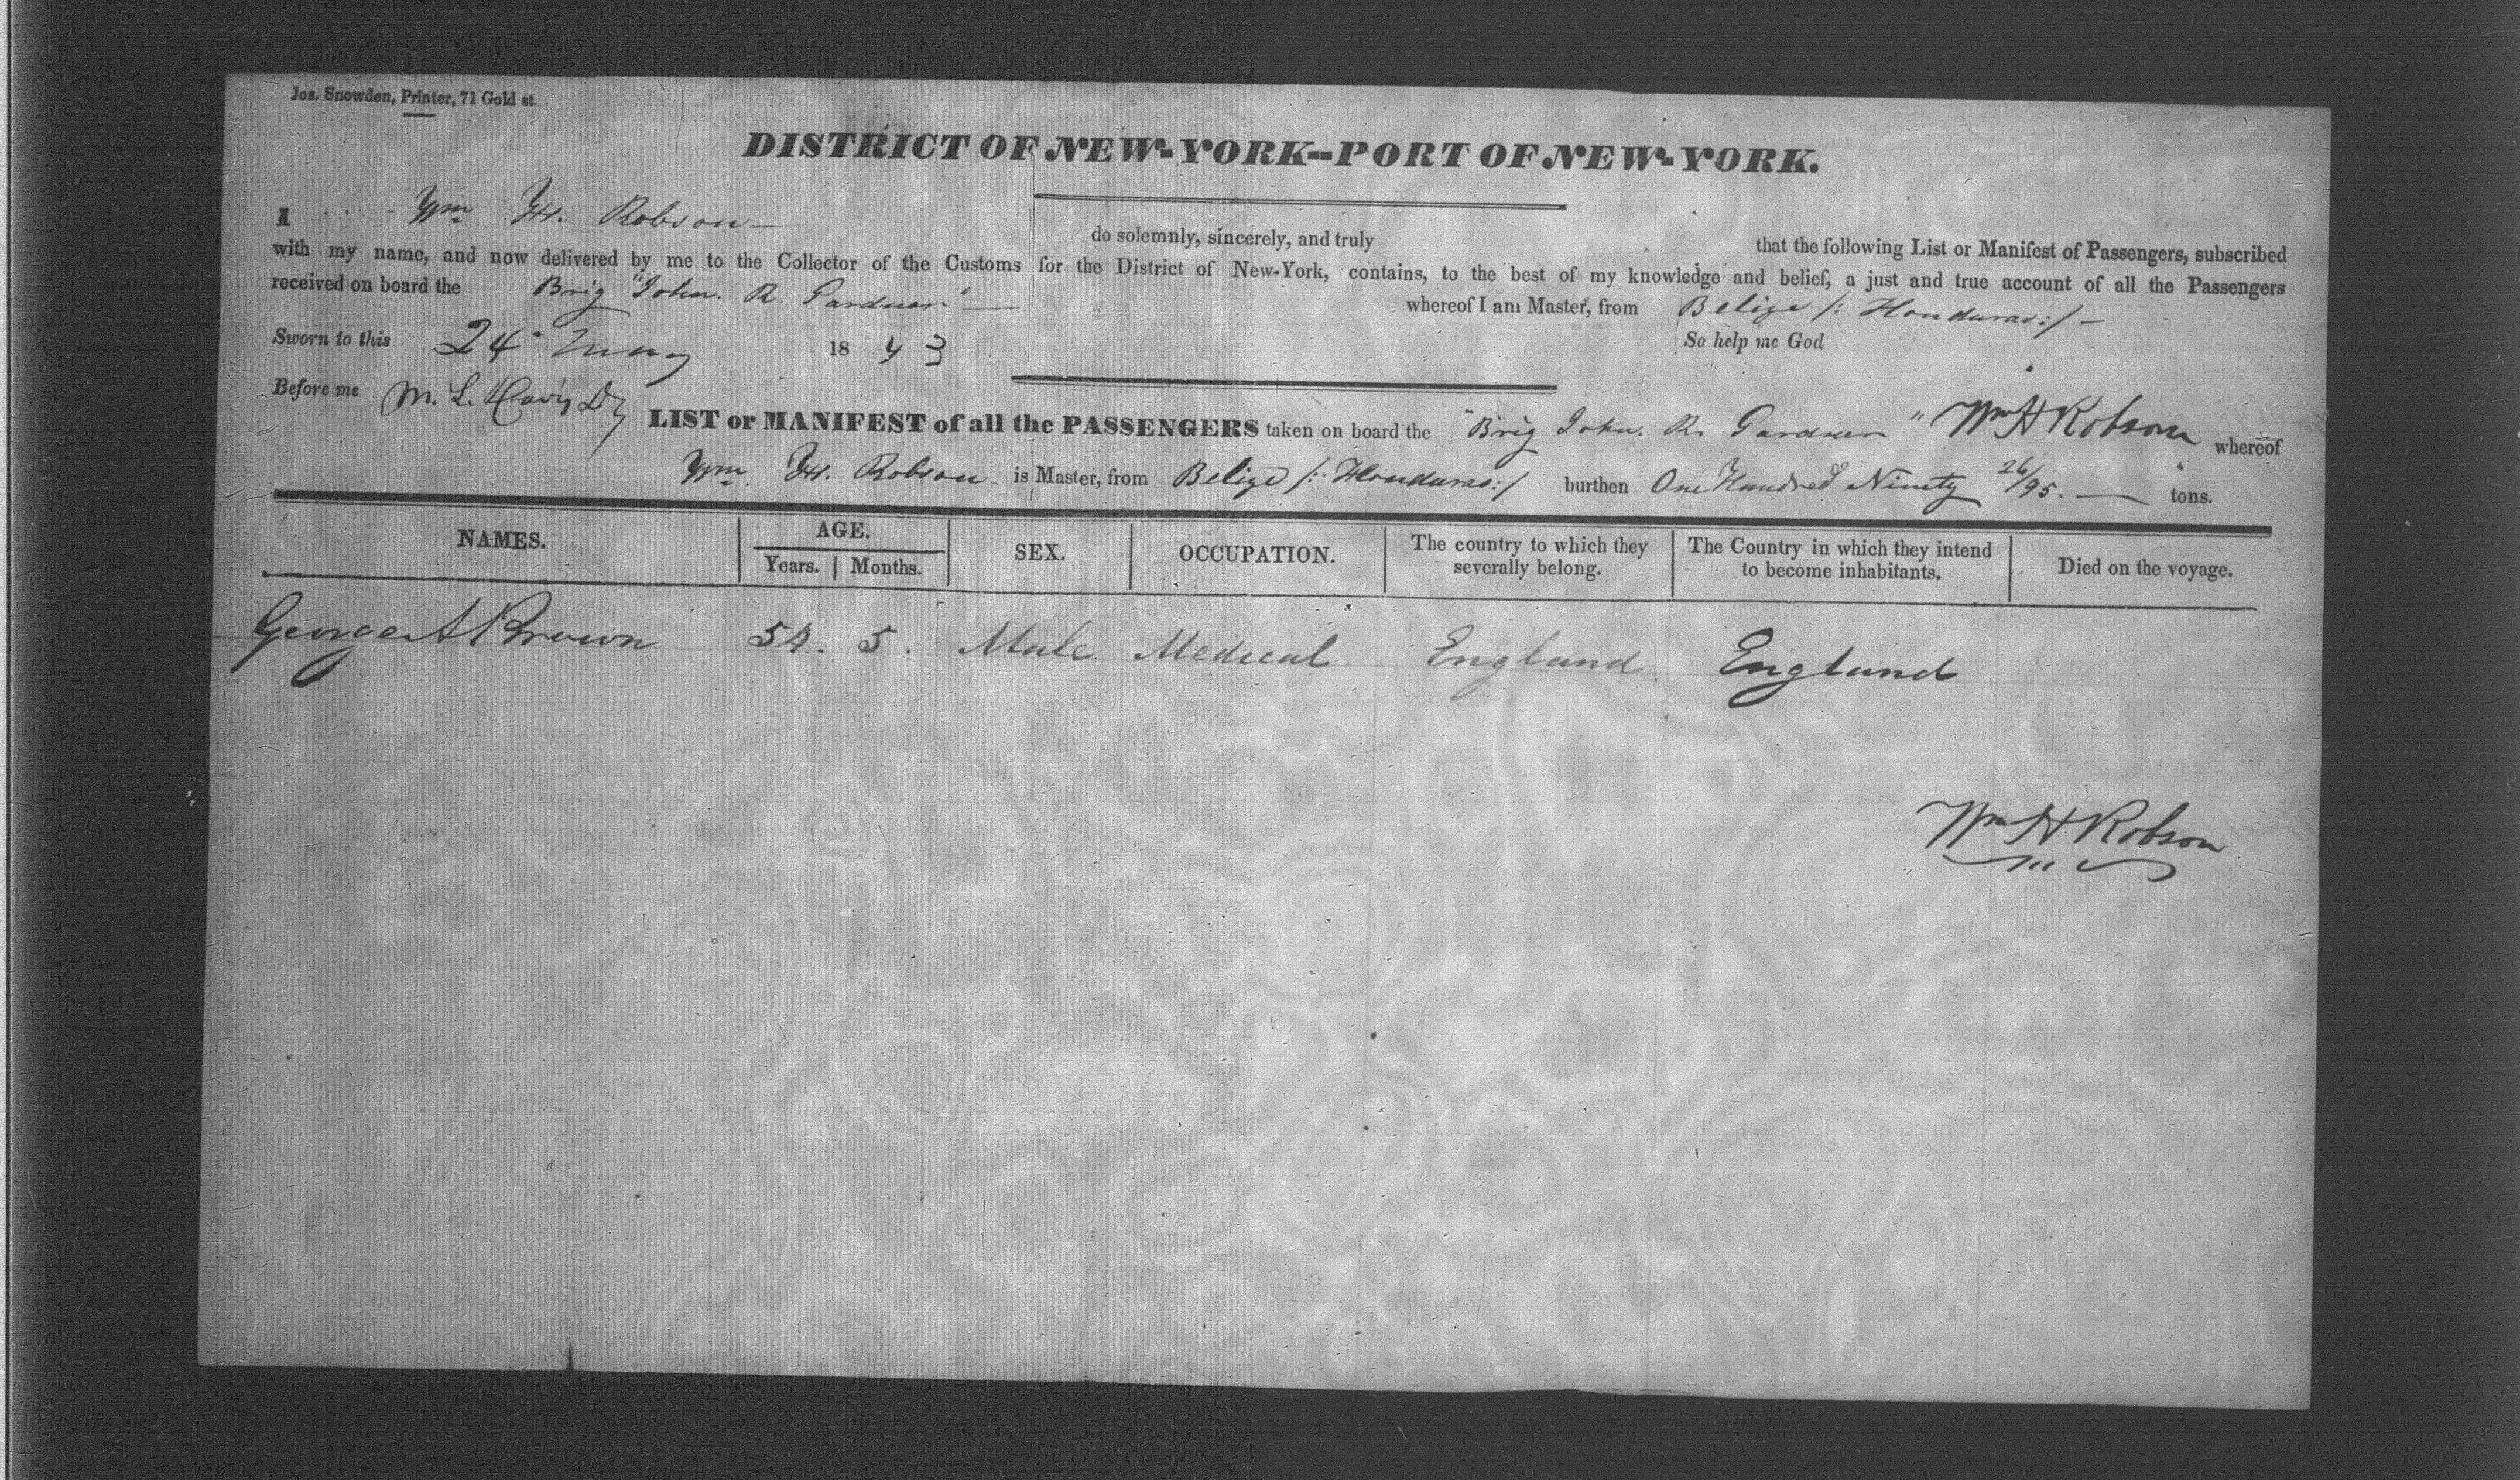 Jos. Snowden, Printer, 71 Gold st.
DISTRICT OF NEW-YORK--PORT OF NEW-YORK.
I Wm H. Robson do solemnly, sincerely, and truly that the following List or Manifest of Passengers, subscribed
with my name, and now delivered by me to the Collector of the Customs for the District of New-York, contains, to the best of my knowledge and belief, a just and true account of all the Passengers
received on board the Brig "John. R. Gardner" whereof I am Master, from Belize /: Honduras :/ -
Sworn to this 24 May 1843 So help me God
Before me M. L. Davis
LIST or MANIFEST of all the PASSENGERS taken on board the "Brig John. R. Gardner" Wm H Robson whereof
Wm. H. Robson is Master, from Belize /: Honduras :/ burthen One Hundred & Ninety 26/95. tons.
NAMES. AGE. SEX. OCCUPATION. The country to which they severally belong. The Country in which they intend to become inhabitants. Died on the voyage.
Years. Months.
George A Brown 54. 5. Male Medical England England
Wm H Robson